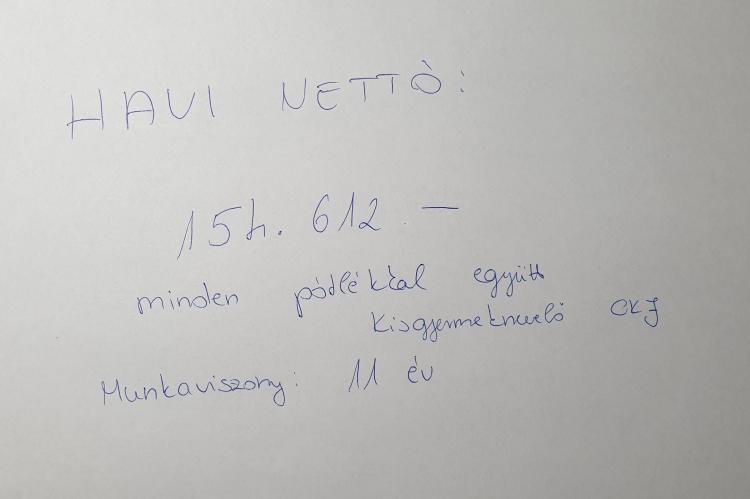 HAVI NETTÓ:
154.612.—
minden pótlékkal együtt
Kisgyermeknevelő OKJ
Munkaviszony: 11 év